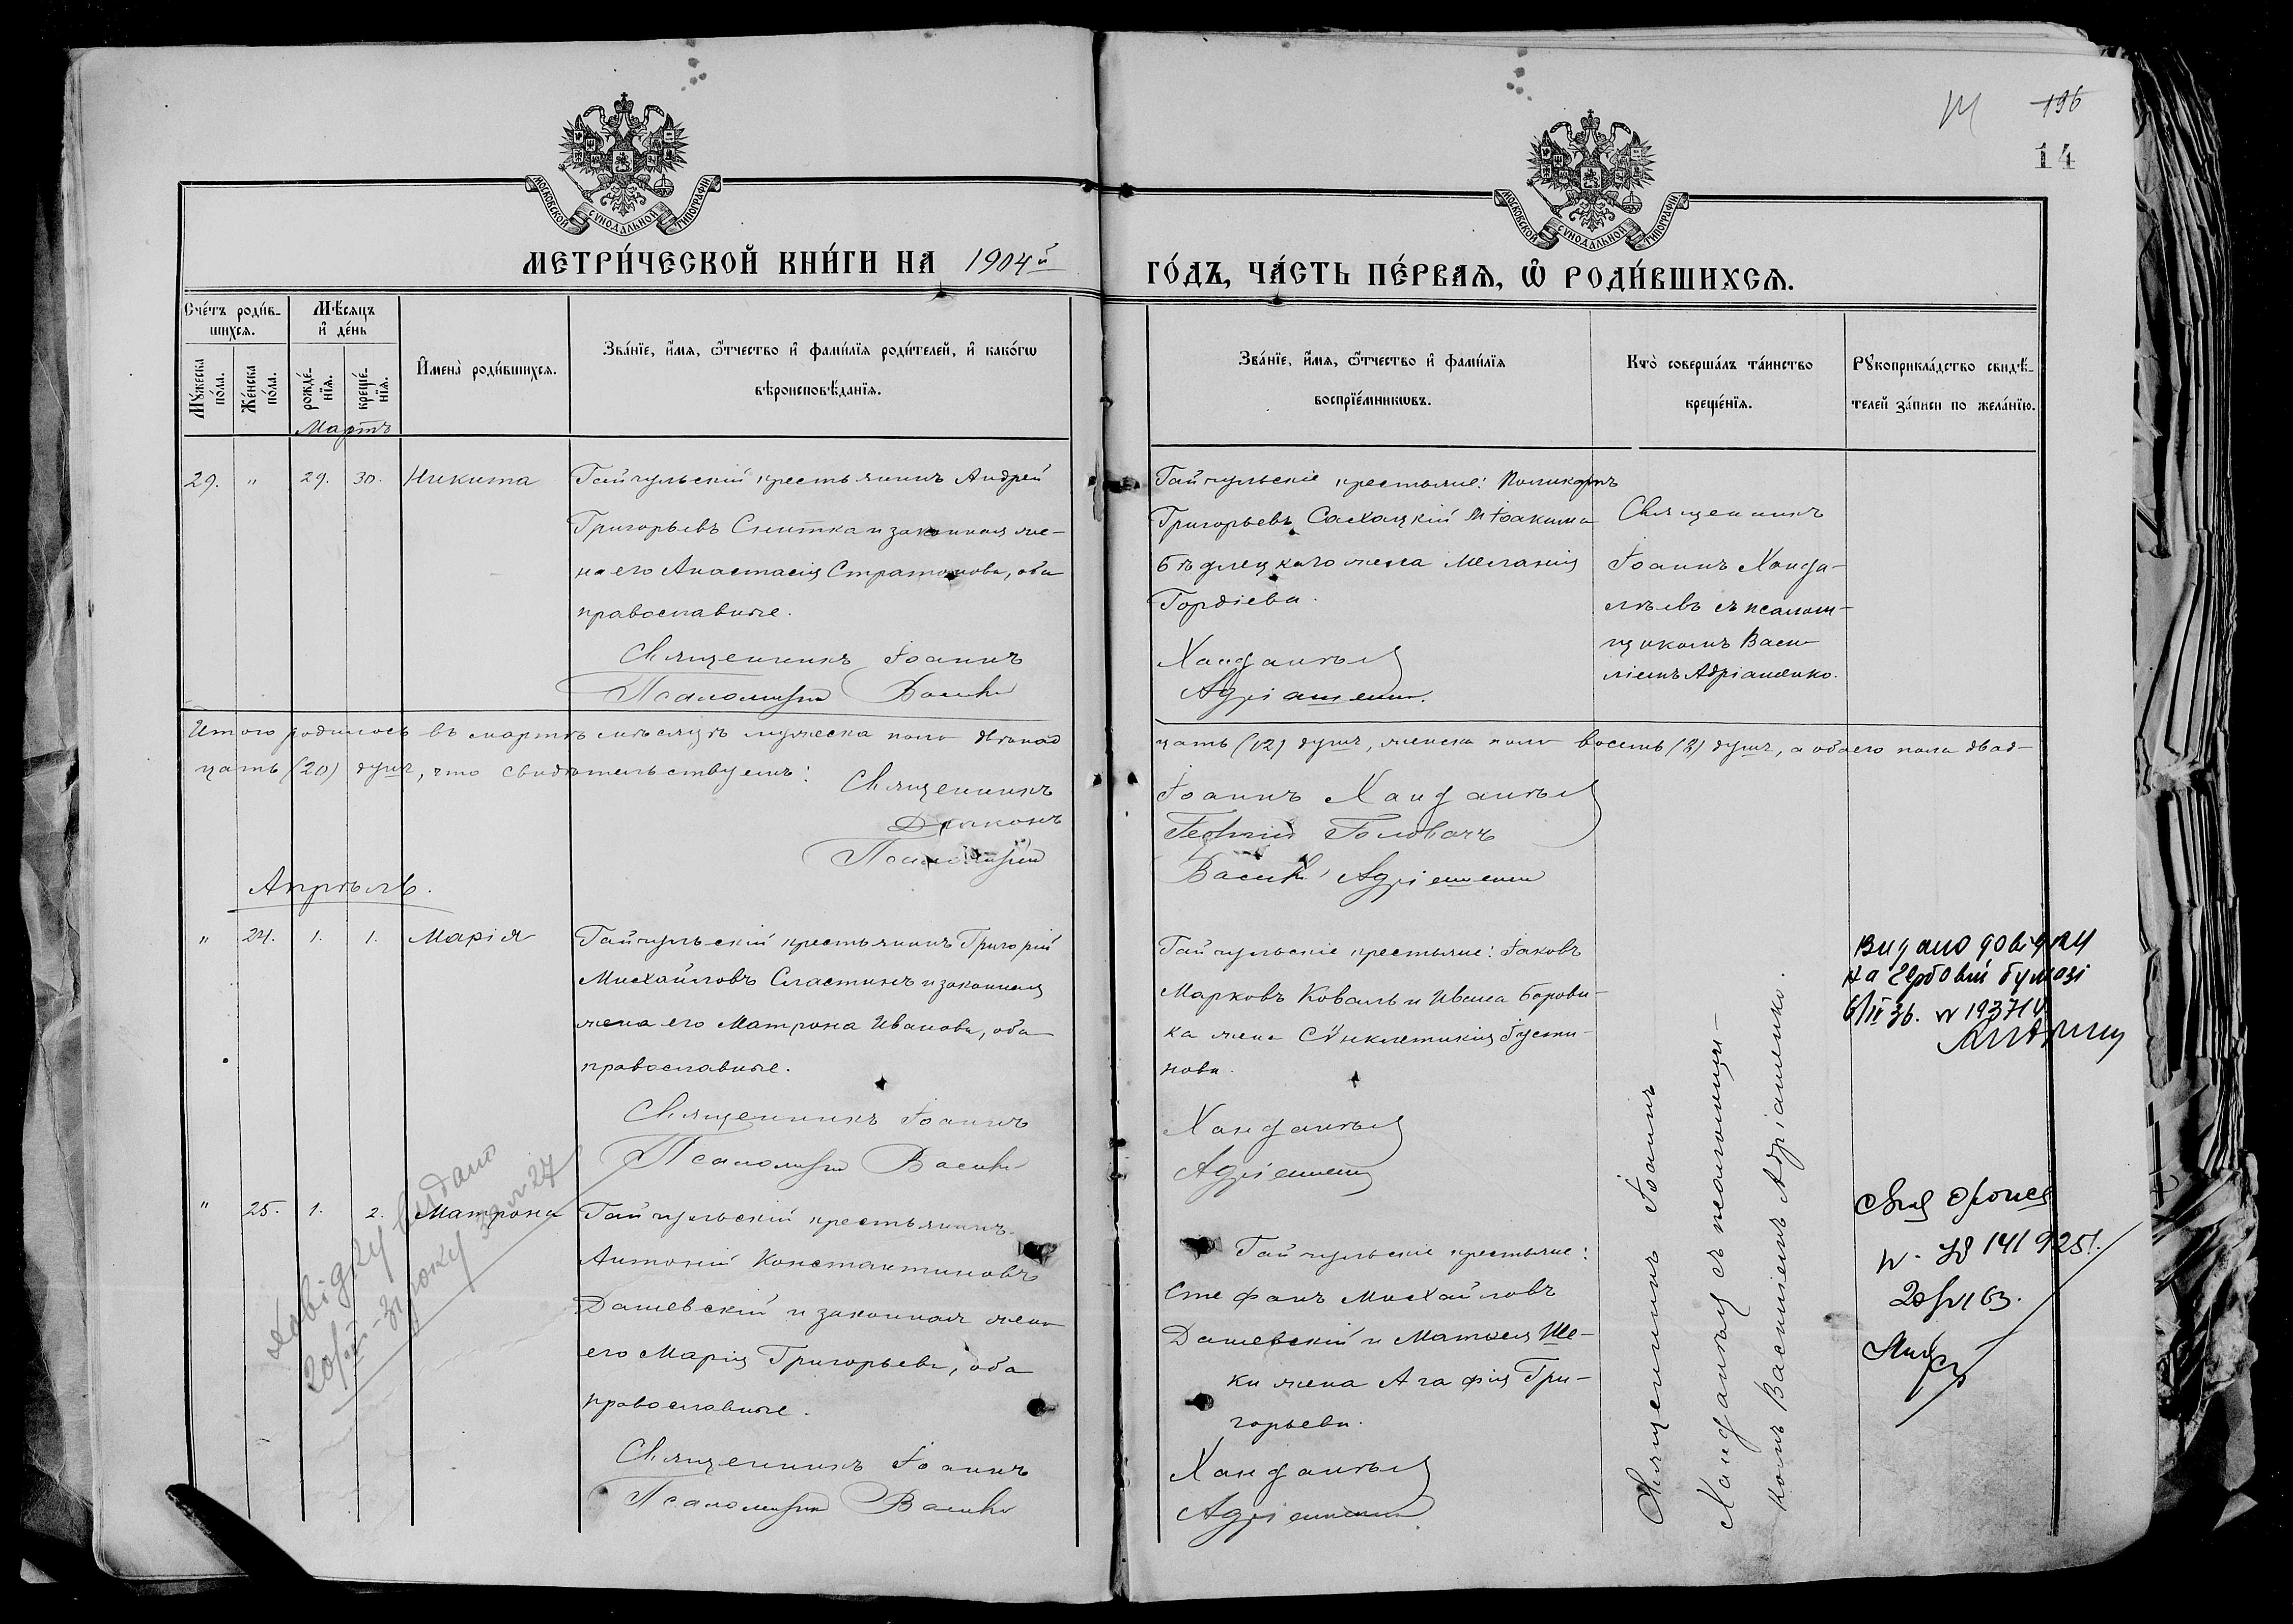 196
14
МОСКОВСКОЙ СѴНОДАЛЬНОЙ ТИПОГРАФІИ
МОСКОВСКОЙ СѴНОДАЛЬНОЙ ТИПОГРАФІИ
МЕТРИ́ЧЕСКОЙ КНИ́ГИ НА 1904й
ГО́ДЪ, ЧА́СТЬ ПЕ́РВАѦ, Ѽ РОДИ́ВШИХСѦ.
Сче́тъ роди́в-
шихсѧ.
Мѣ́сѧцъ
и҆ де́нь
Мꙋ́жеска
по́ла.
Же́нска
по́ла.
рожде́-
нїѧ.
креще́-
нїѧ.
И҆мена̀ роди́вшихсѧ.
Зва́нїе, и҆́мѧ, ѻ҆́тчество и҆ фами́лїѧ роди́телей, и҆ како́гѡ
вѣроисповѣ́данїѧ.
Зва́нїе, и҆́мѧ, ѻ҆́тчество и҆ фами́лїѧ
воспрїе́мникѡвъ.
Кто̀ соверша́лъ та́инство
креще́нїѧ.
Рꙋкоприкла́дство свидѣ́-
телей за́писи по жела́нїю.
Мартъ
29. " 29. 30. Никита
Гайчульскій крестьянинъ Андрей
Григорьевъ Снитка и законная же-
на его Анастасія Стратонова, оба
православные.
Священникъ Іоаннъ
Псаломщикъ Василій
Гайчульскіе крестьяне: Поликарпъ
Григорьевъ Сахацкій и Іоакима
Бѣдлецкаго жена Меланія
Гордіева.
Хандалѣевъ
Адріаненко.
Священникъ
Іоаннъ Ханда-
лѣевъ съ псалом-
щикомъ Васи-
ліемъ Адріаненко.
Итого родилось въ мартѣ мѣсяцѣ мужеска пола двѣнад
цать (12) душъ, женска пола восемь (8) душъ, а обоего пола двад-
цать (20) душъ, что свидѣтельствуемъ:
Священникъ
Іоаннъ Хандалѣевъ
Діаконъ
Георгій Головачъ
Псаломщикъ
Василій Адріаненко
Апрѣль.
" 24. 1. 1. Марія
Гайчульскій крестьянинъ Григорій
Михайловъ Сластинъ и законная
жена его Матрона Иванова, оба
православные.
Священникъ Іоаннъ
Псаломщикъ Василій
Гайчульскіе крестьяне: Іаковъ
Марковъ Коваль и Ивана Борови-
ка жена Сѵнклетикія Іусти-
нова.
Хандалѣевъ
Адріаненко
Видано довідку
на гербовій бумазі
6/II 36. № 193710
" 25. 1. 2. Матрона
Гайчульскій крестьянинъ
Антоній Константиновъ
Дашевскій и законная жена
его Марія Григорьева, оба
православные.
Священникъ Іоаннъ
Псаломщикъ Василій
Гайчульскіе крестьяне:
Стефанъ Михайловъ
Дашевскій и Матвея Ше-
ки жена Агафія Гри-
горьева.
Хандалѣевъ
Адріаненко
Священникъ Іоаннъ
Хандалѣевъ съ псаломщи-
комъ Василіемъ Адріаненко.
141 925
Довідку видано